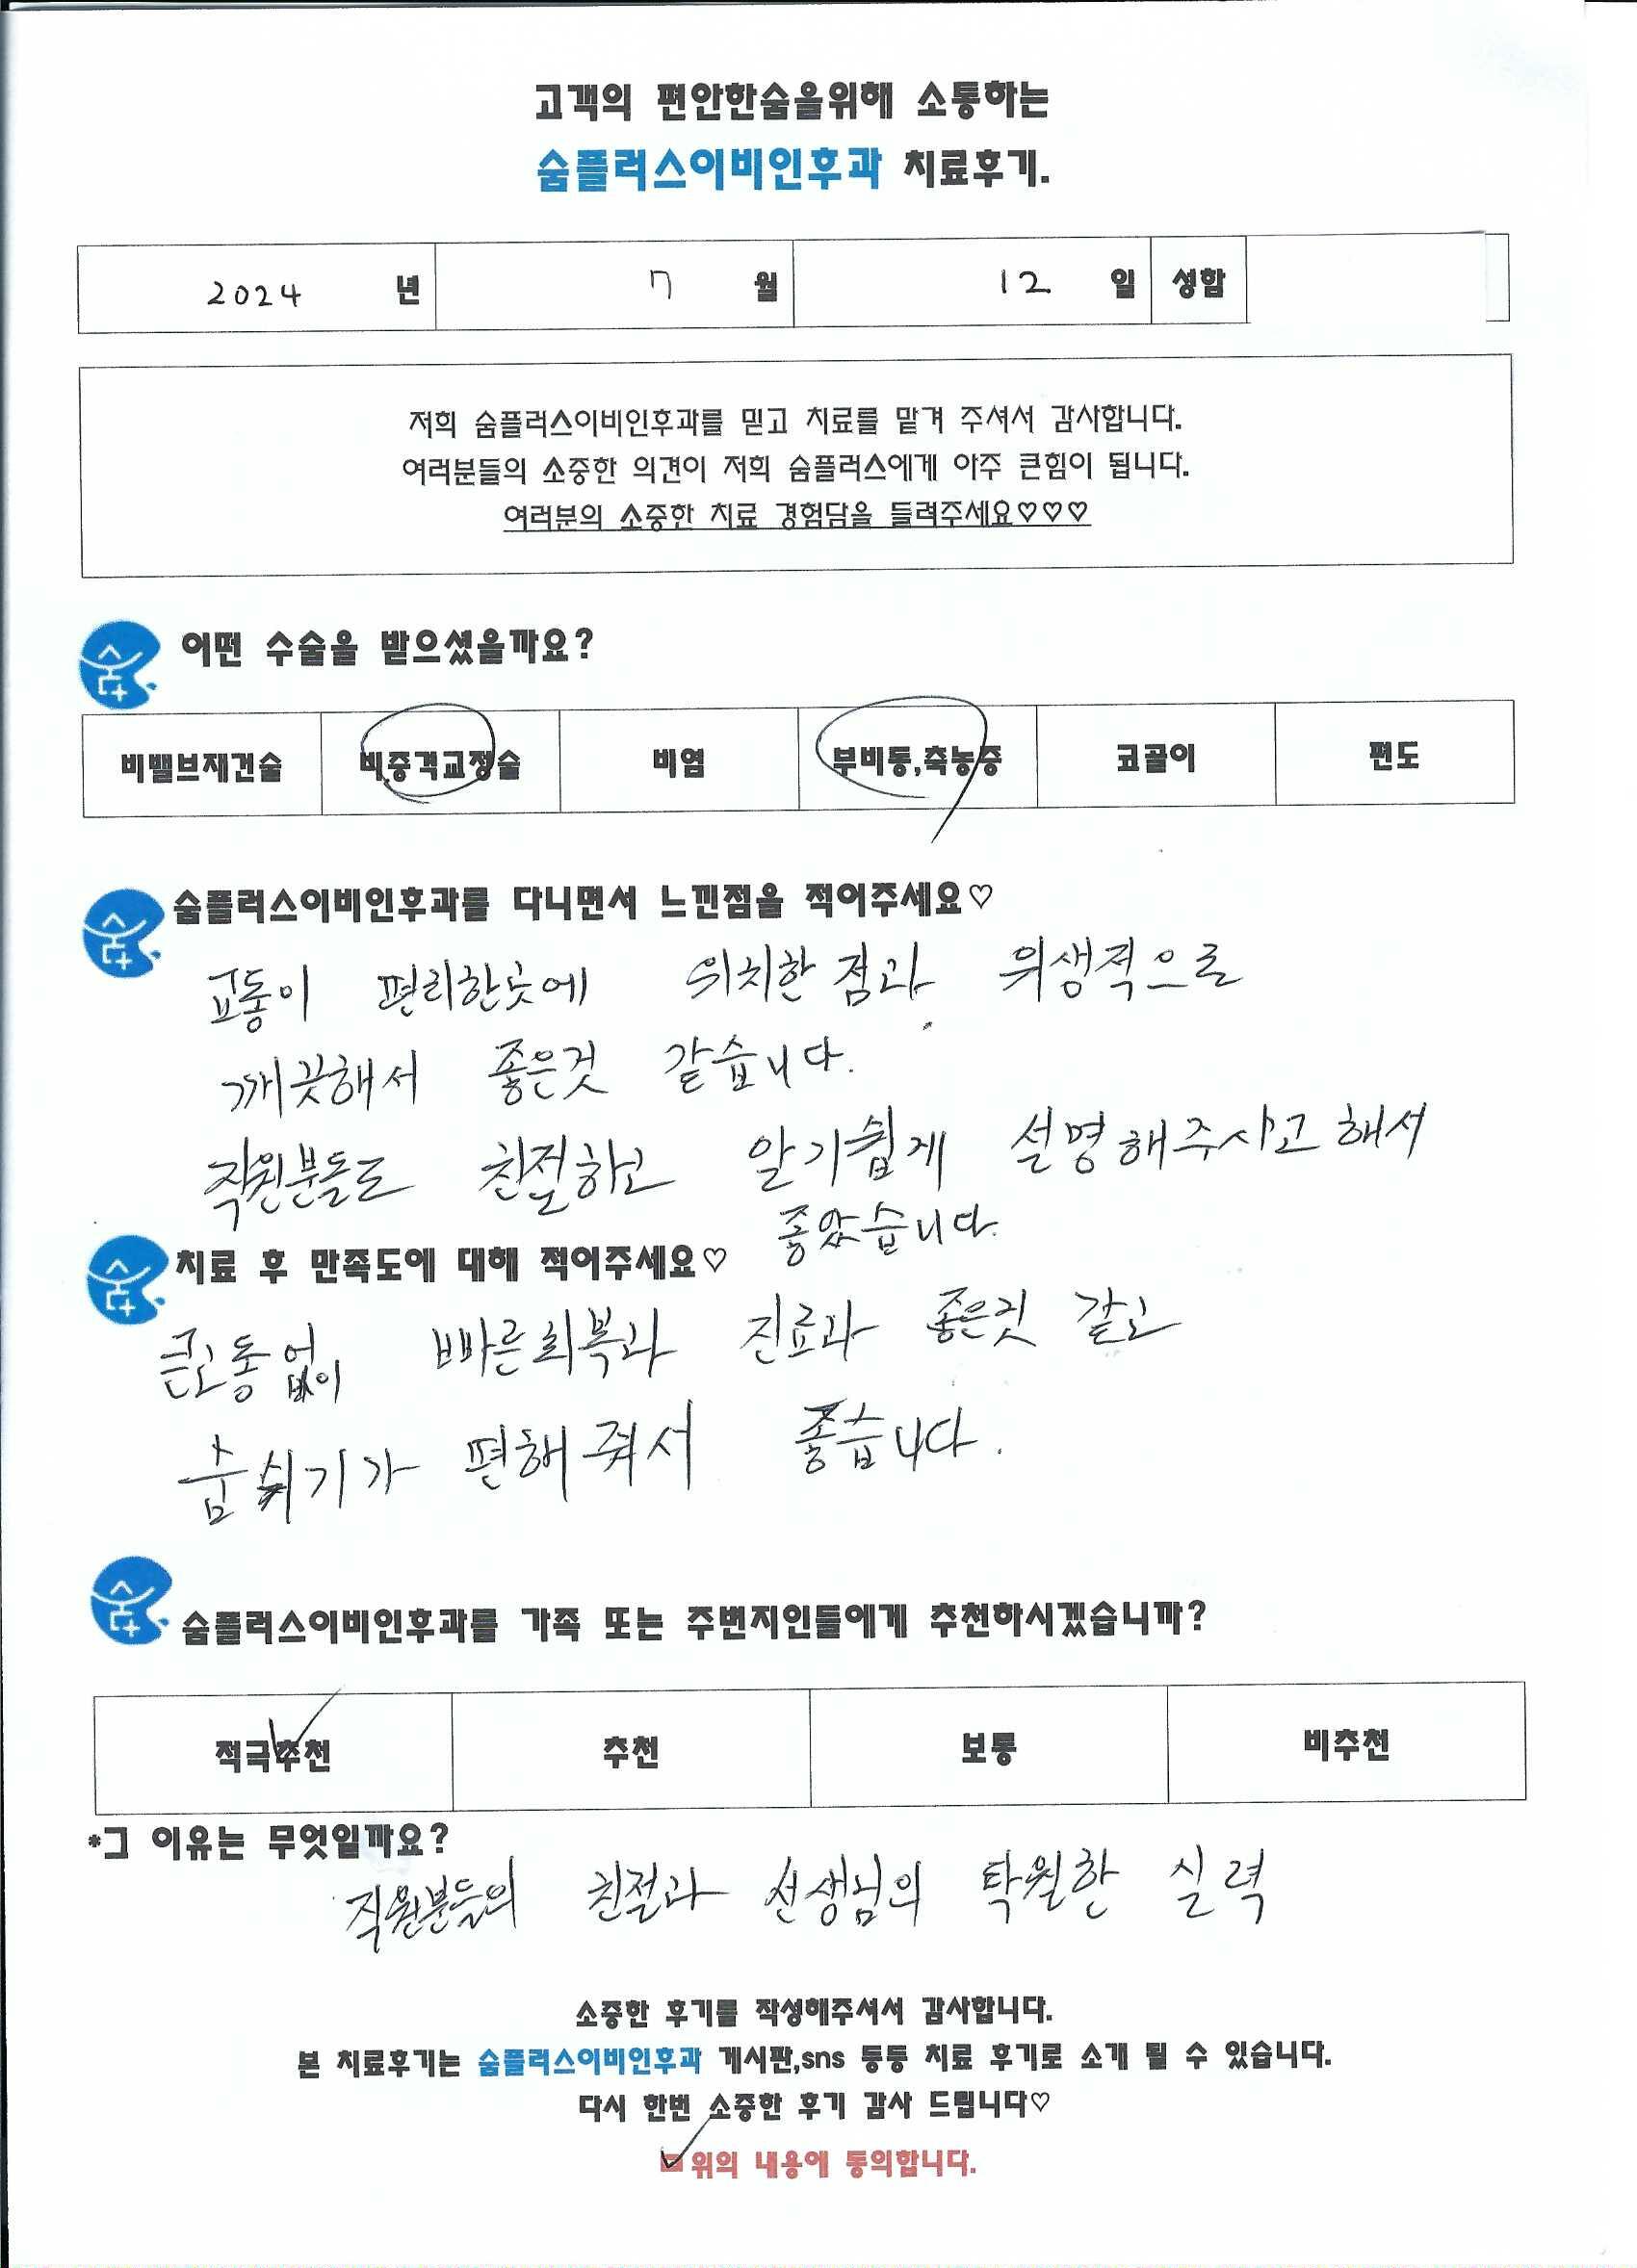 고객의 편안한숨을위해 소통하는
숨플러스이비인후과 치료후기.
2024 년 7 월 12 일 성함
저희 숨플러스이비인후과를 믿고 치료를 맡겨 주셔서 감사합니다.
여러분들의 소중한 의견이 저희 숨플러스에게 아주 큰힘이 됩니다.
여러분의 소중한 치료 경험담을 들려주세요♡♡♡
숨 어떤 수술을 받으셨을까요?
비밸브재건술 비중격교정술 비염 부비동,축농증 코골이 편도
숨 숨플러스이비인후과를 다니면서 느낀점을 적어주세요♡
교통이 편리한곳에 위치한 점과 위생적으로
깨끗해서 좋은것 같습니다.
직원분들도 친절하고 알기쉽게 설명해주시고 해서
좋았습니다.
숨 치료 후 만족도에 대해 적어주세요♡
큰고통없이 빠른회복과 진료과 좋은것 같고
숨쉬기가 편해줘서 좋습니다.
숨 숨플러스이비인후과를 가족 또는 주변지인들에게 추천하시겠습니까?
적극추천 추천 보통 비추천
*그 이유는 무엇일까요?
직원분들의 친절과 선생님의 탁월한 실력
소중한 후기를 작성해주셔서 감사합니다.
본 치료후기는 숨플러스이비인후과 게시판,sns 등등 치료 후기로 소개 될 수 있습니다.
다시 한번 소중한 후기 감사 드립니다♡
위의 내용에 동의합니다.